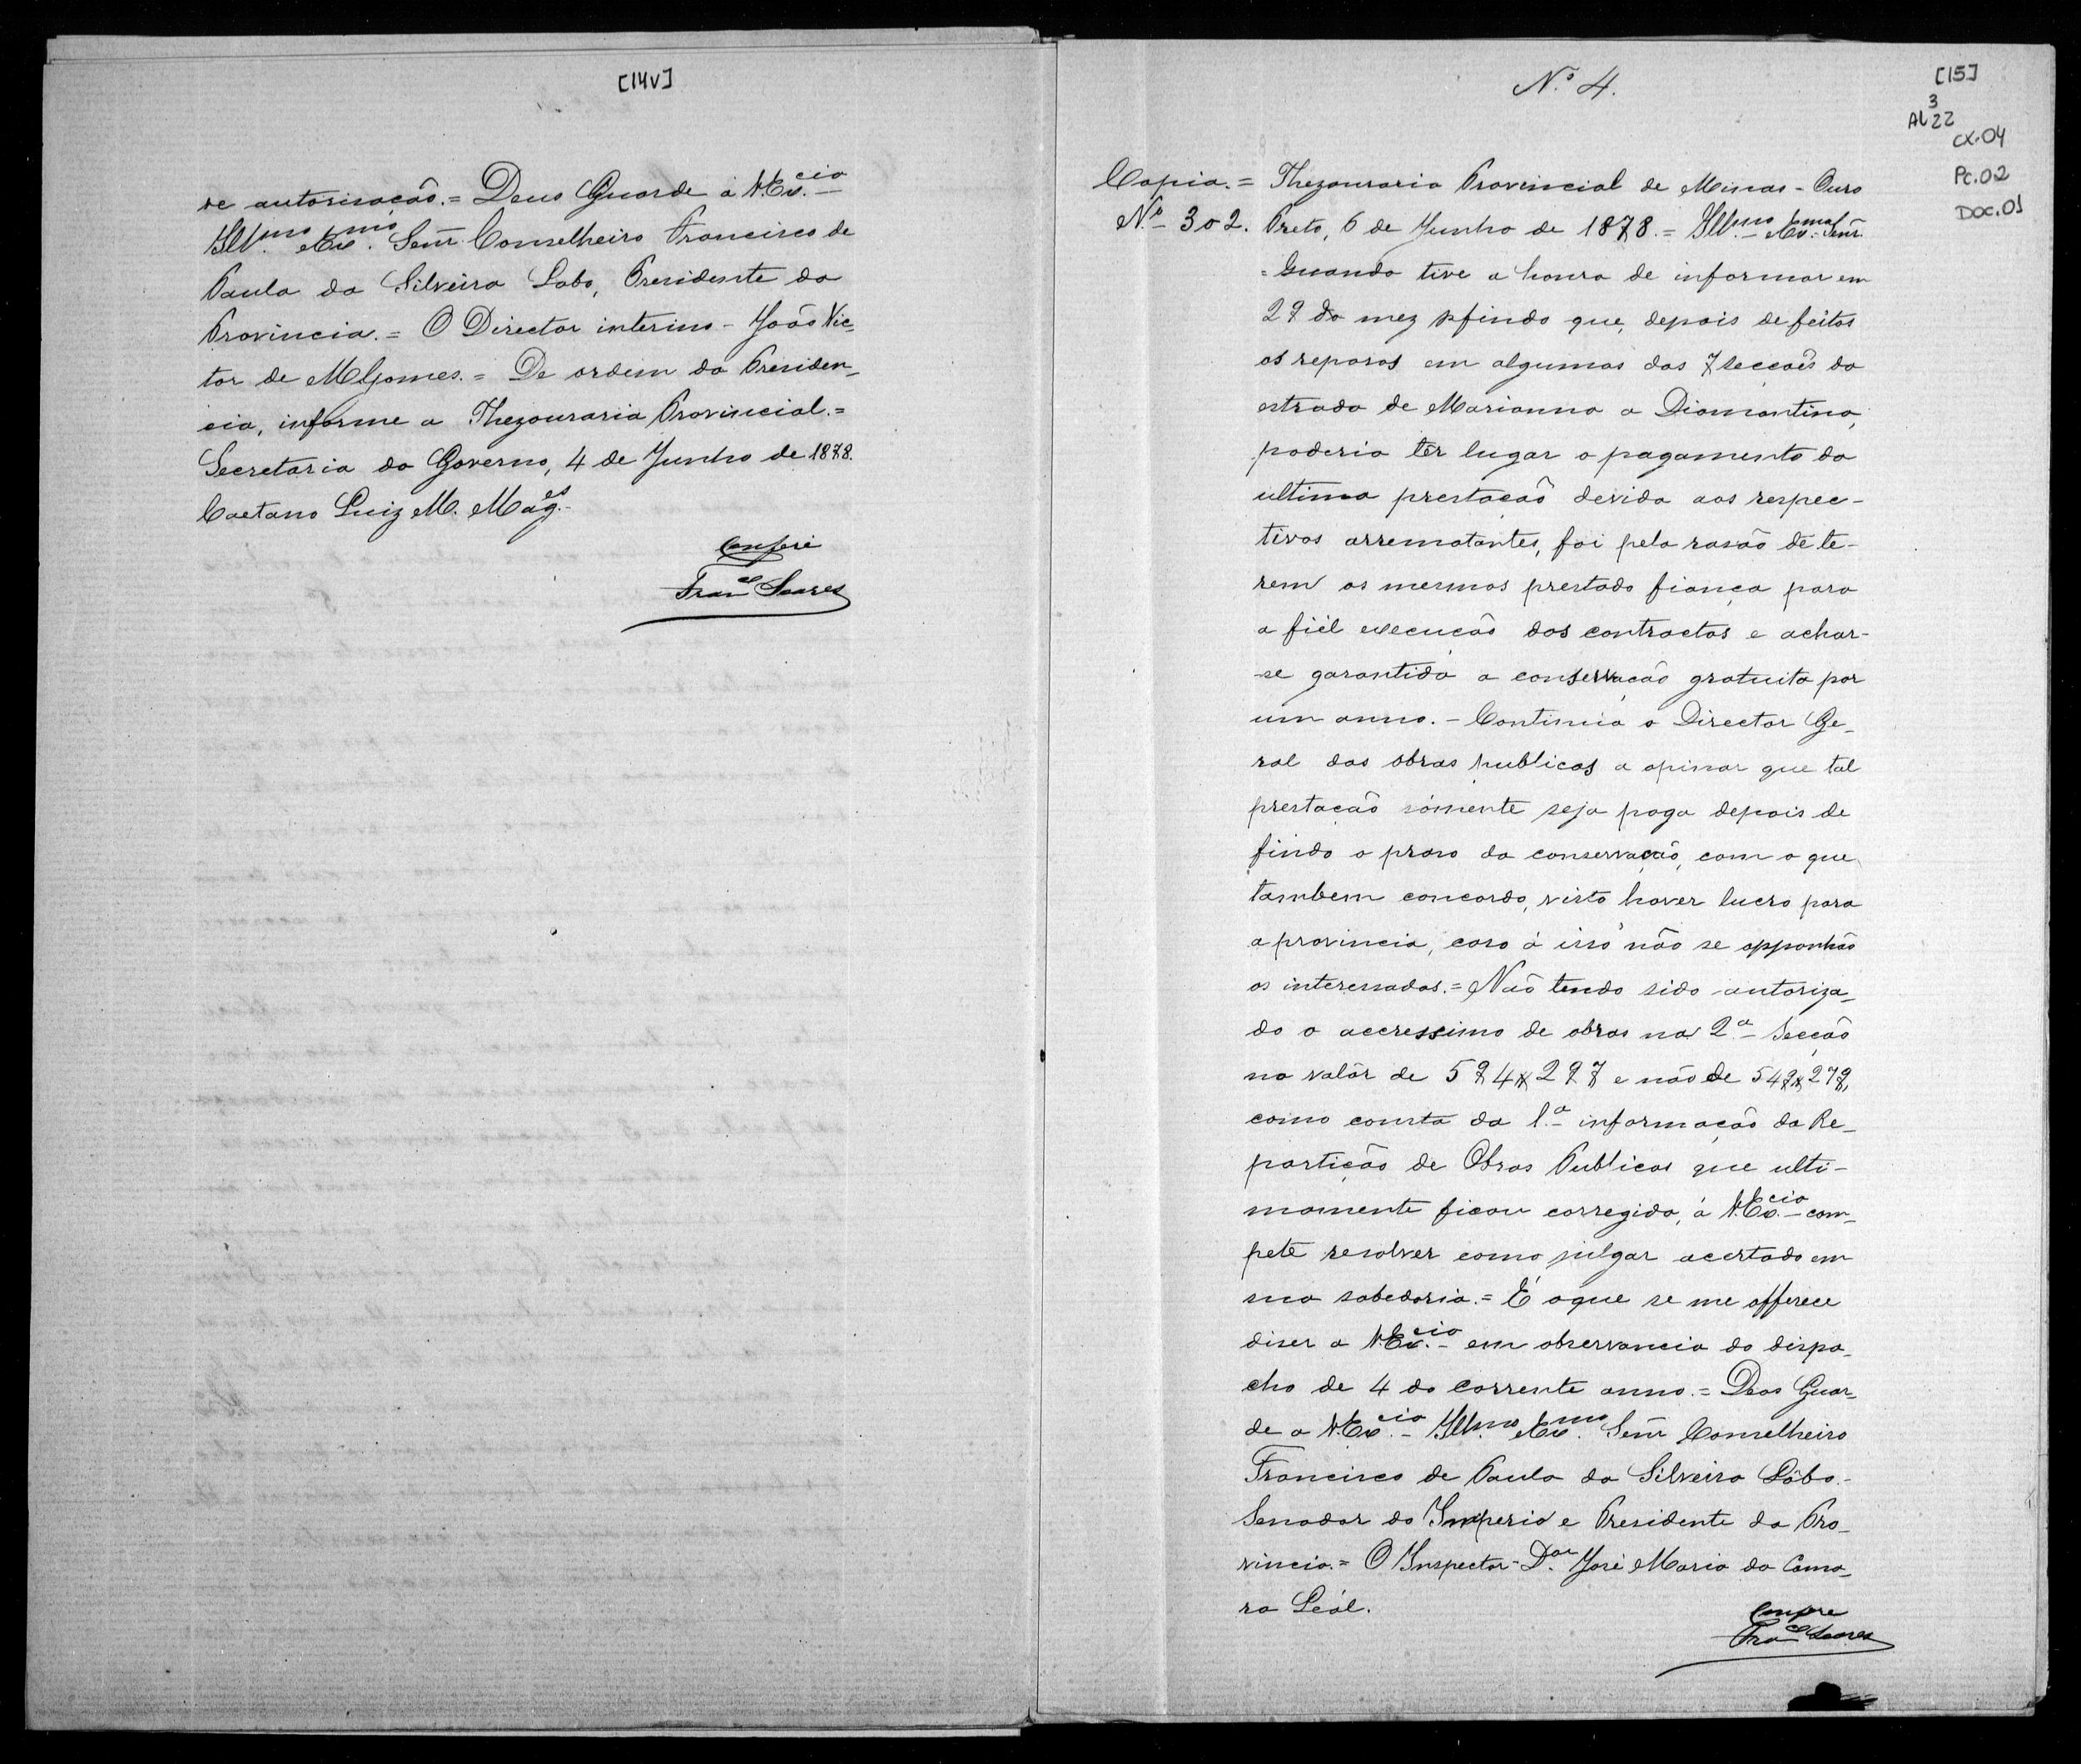 [14v]
de autorisação. = Deus Guarde a V.Ex.cia
Ill.mo Ex.mo Senr. Conselheiro Francisco de
Paula da Silveira Lobo, Presidente da
Provincia. = O Director interino - João Vic-
tor de M. Gomes. = De ordem da Presiden-
cia, informe a Thezouraria Provincial. =
Secretaria do Governo, 4 de Junho de 1878.
Caetano Luiz M. Mag.es
Conferi
Fran.co Soares
N.º 4.
[15]
3
AL 22
CX.04
Pc.02
DOC.01
Copia. = Thezouraria Provincial de Minas - Ouro
N.º 302. Preto, 6 de Junho de 1878. = Ill.mo Ex.mo Senr.
= Quando tive a honra de informar em
29 do mez pfindo que, depois de feitos
os reparos em algumas das 7 secções da
estrada de Marianna a Diamantina,
poderia têr lugar o pagamento da
ultima prestação devida aos respec-
tivos arrematantes, foi pela rasão de te-
rem os mesmos prestado fiança para
a fiél execução dos contractos e achar-
-se garantida a conservação gratuita por
um anno. - Continúa o Director Ge-
ral das obras publicas a opinar que tal
prestação sómente seja paga depois de
findo o praso da conservação, com o que
tambem concordo, visto haver lucro para
a provincia, caso á isso não se opponhão
os interessados. = Não tendo sido autoriza-
do o accressimo de obras na 2.ª Secção
no valôr de 594$297 e não de 549$279,
como consta da 1.ª informação da Re-
partição de Obras Publicas que ulti-
mamente ficou corregida, á V.Ex.cia com-
pete resolver como julgar acertado em
sua sabedoria. = É o que se me offerece
diser a V.Ex.cia em observancia do dispa-
cho de 4 do corrente anno. = Deos Guar-
de a V.Ex.cia - Ill.mo Ex.mo Senr Conselheiro
Francisco de Paula da Silveira Lôbo. -
Senador do Imperio e Presidente da Pro-
vincia. = O Inspector - D.or José Maria da Cama-
ra Leál.
Confere
Fran.co Soares